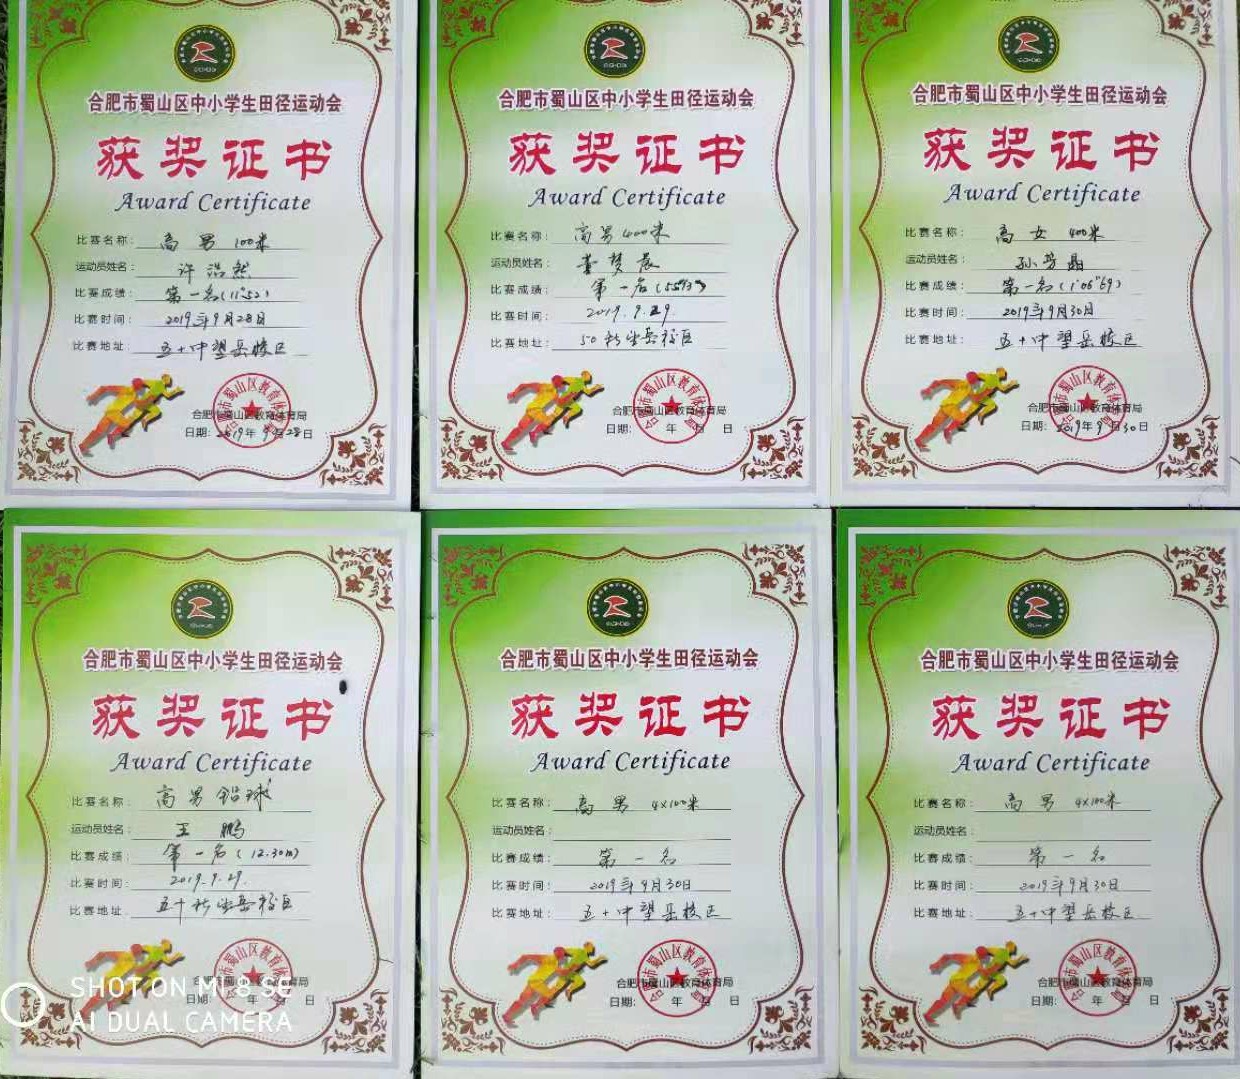 合肥市蜀山区中小学生田径运动会
获奖证书
Award Certificate
比赛名称: 高男 100米
运动员姓名: 许浩然
比赛成绩: 第一名(11"52)
比赛时间: 2019年9月28日
比赛地址: 五十中望岳校区
合肥市蜀山区教育体育局
日期: 2019年9月28日
合肥市蜀山区中小学生田径运动会
获奖证书
Award Certificate
比赛名称: 高男400米
运动员姓名: 梦辰
比赛成绩: 第一名(55"93)
比赛时间: 2019.9.29.
比赛地址: 50中望岳校区
合肥市蜀山区教育体育局
日期: 年 月 日
合肥市蜀山区中小学生田径运动会
获奖证书
Award Certificate
比赛名称: 高女 400米
运动员姓名: 孙晶
比赛成绩: 第一名(1'06"69)
比赛时间: 2019年9月30日
比赛地址: 五十中望岳校区
合肥市蜀山区教育体育局
日期: 2019年9月30日
合肥市蜀山区中小学生田径运动会
获奖证书
Award Certificate
比赛名称: 高男铅球
运动员姓名: 王鹏
比赛成绩: 第一名(12.30m)
比赛时间: 2019.9.29.
比赛地址: 五十中望岳校区
合肥市蜀山区教育体育局
日期: 年 月 日
合肥市蜀山区中小学生田径运动会
获奖证书
Award Certificate
比赛名称: 高男 4x100米
运动员姓名:
比赛成绩: 第一名
比赛时间: 2019年9月30日
比赛地址: 五十中望岳校区
合肥市蜀山区教育体育局
日期: 年 月 日
合肥市蜀山区中小学生田径运动会
获奖证书
Award Certificate
比赛名称: 高男 4x100米
运动员姓名:
比赛成绩: 第一名
比赛时间: 2019年9月30日
比赛地址: 五十中望岳校区
合肥市蜀山区教育体育局
日期: 年 月 日
SHOT ON MI 8 SE
AI DUAL CAMERA